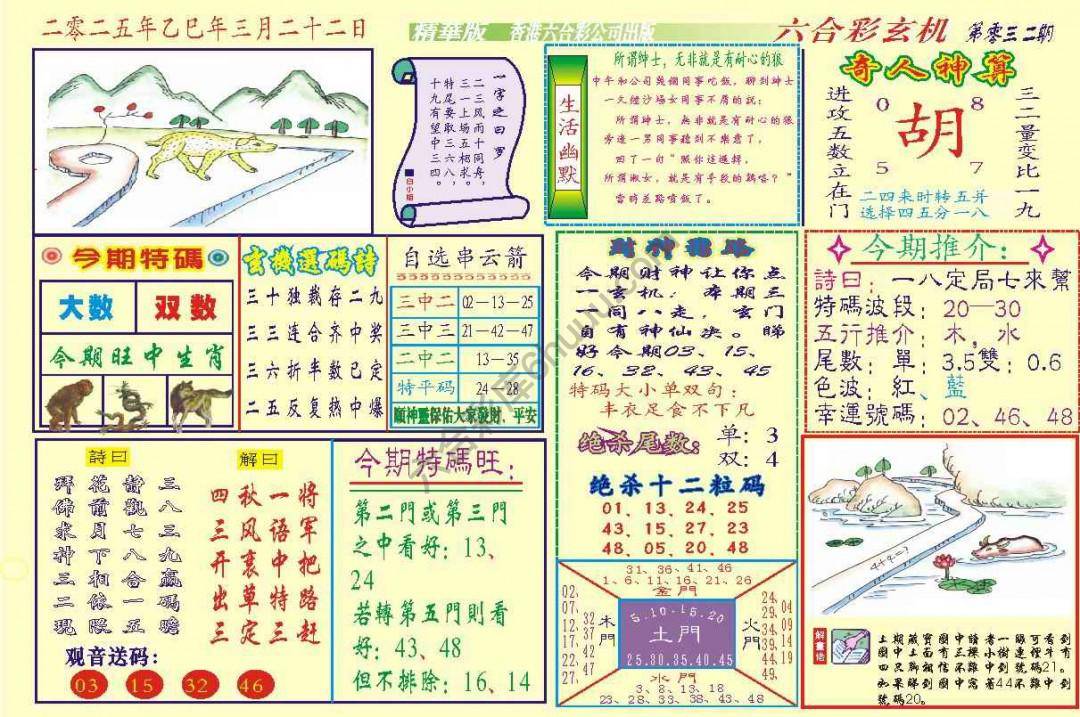 二零二五年乙巳年三月二十二日
精華版 香港六合彩公司出版
六合彩玄机 第零三二期
一字之曰：罗
二三风雨十同舟，
三一上场五相求，
特尾要取三六八，
十九有望中三四。
白小姐
生活幽默
所謂绅士，无非就是有耐心的狼
中午和公司與個同事吃飯，聊到绅士
一久經沙場女同事不屑的説：
所謂绅士，無非就是有耐心的狼
旁邊一男同事聽到不樂意了，
回了一句"照你這邏輯，
所謂淑女，就是有手段的鷄咯？"
當時差點噴飯了。
奇人神算
进攻五数立在门
0 8
胡
5 7
三二量变比一九
二四来时转五并
选择四五分一八
今期特碼
大数 双数
今期旺中生肖
玄機選碼詩
三十独裁存二九
三三连合齐中奖
三六折半数已定
二五反复热中爆
自选串云箭
三中二 02—13—25
三中三 21—42—47
二中二 13—35
特平码 24—28
願神靈保佑大家發財、平安
财神指路
今期财神让你点
一玄机：本期三
一同八走，玄门
自有神仙决。睇
好今期03、15、
16、32、43、45
特码大小单双句：
丰衣足食不下凡
绝杀尾数： 单：3
双：4
绝杀十二粒码
01、13、24、25
43、15、27、23
48、05、20、48
今期推介：
詩曰：一八定局七來幫
特碼波段：20—30
五行推介：木，水
尾數：單：3.5雙：0.6
色波：紅、藍
幸運號碼：02、46、48
詩曰
三八三九赢碼瞻
静觀七八合一五
花前月下相依隈
拜佛求神三二現
解曰
将军把路赶
一语中特三
秋风裹草定
四三开出三
观音送码：
03 15 32 46
今期特碼旺：
第二門或第三門
之中看好：13、
24
若轉第五門則看
好：43、48
但不排除：16、14
31、36、41、46
1、6、11、16、21、26
金門
02、07、12、17、22、27
32、37、42、47
木門
5.10.15.20
土門
25.30.35.40.45
火門
24、29、34、39、44、49
04、09、14、19
水門
3、8、13、18
23、28、33、38、43、48
4+4=?
解畫語
上期藏寶圖中讀者一眼可看到
圖中上面有三棵小樹連徑牛有
四只脚相信不難中到號碼21。
如果睇到圖中寫著44不難中到
號碼20。